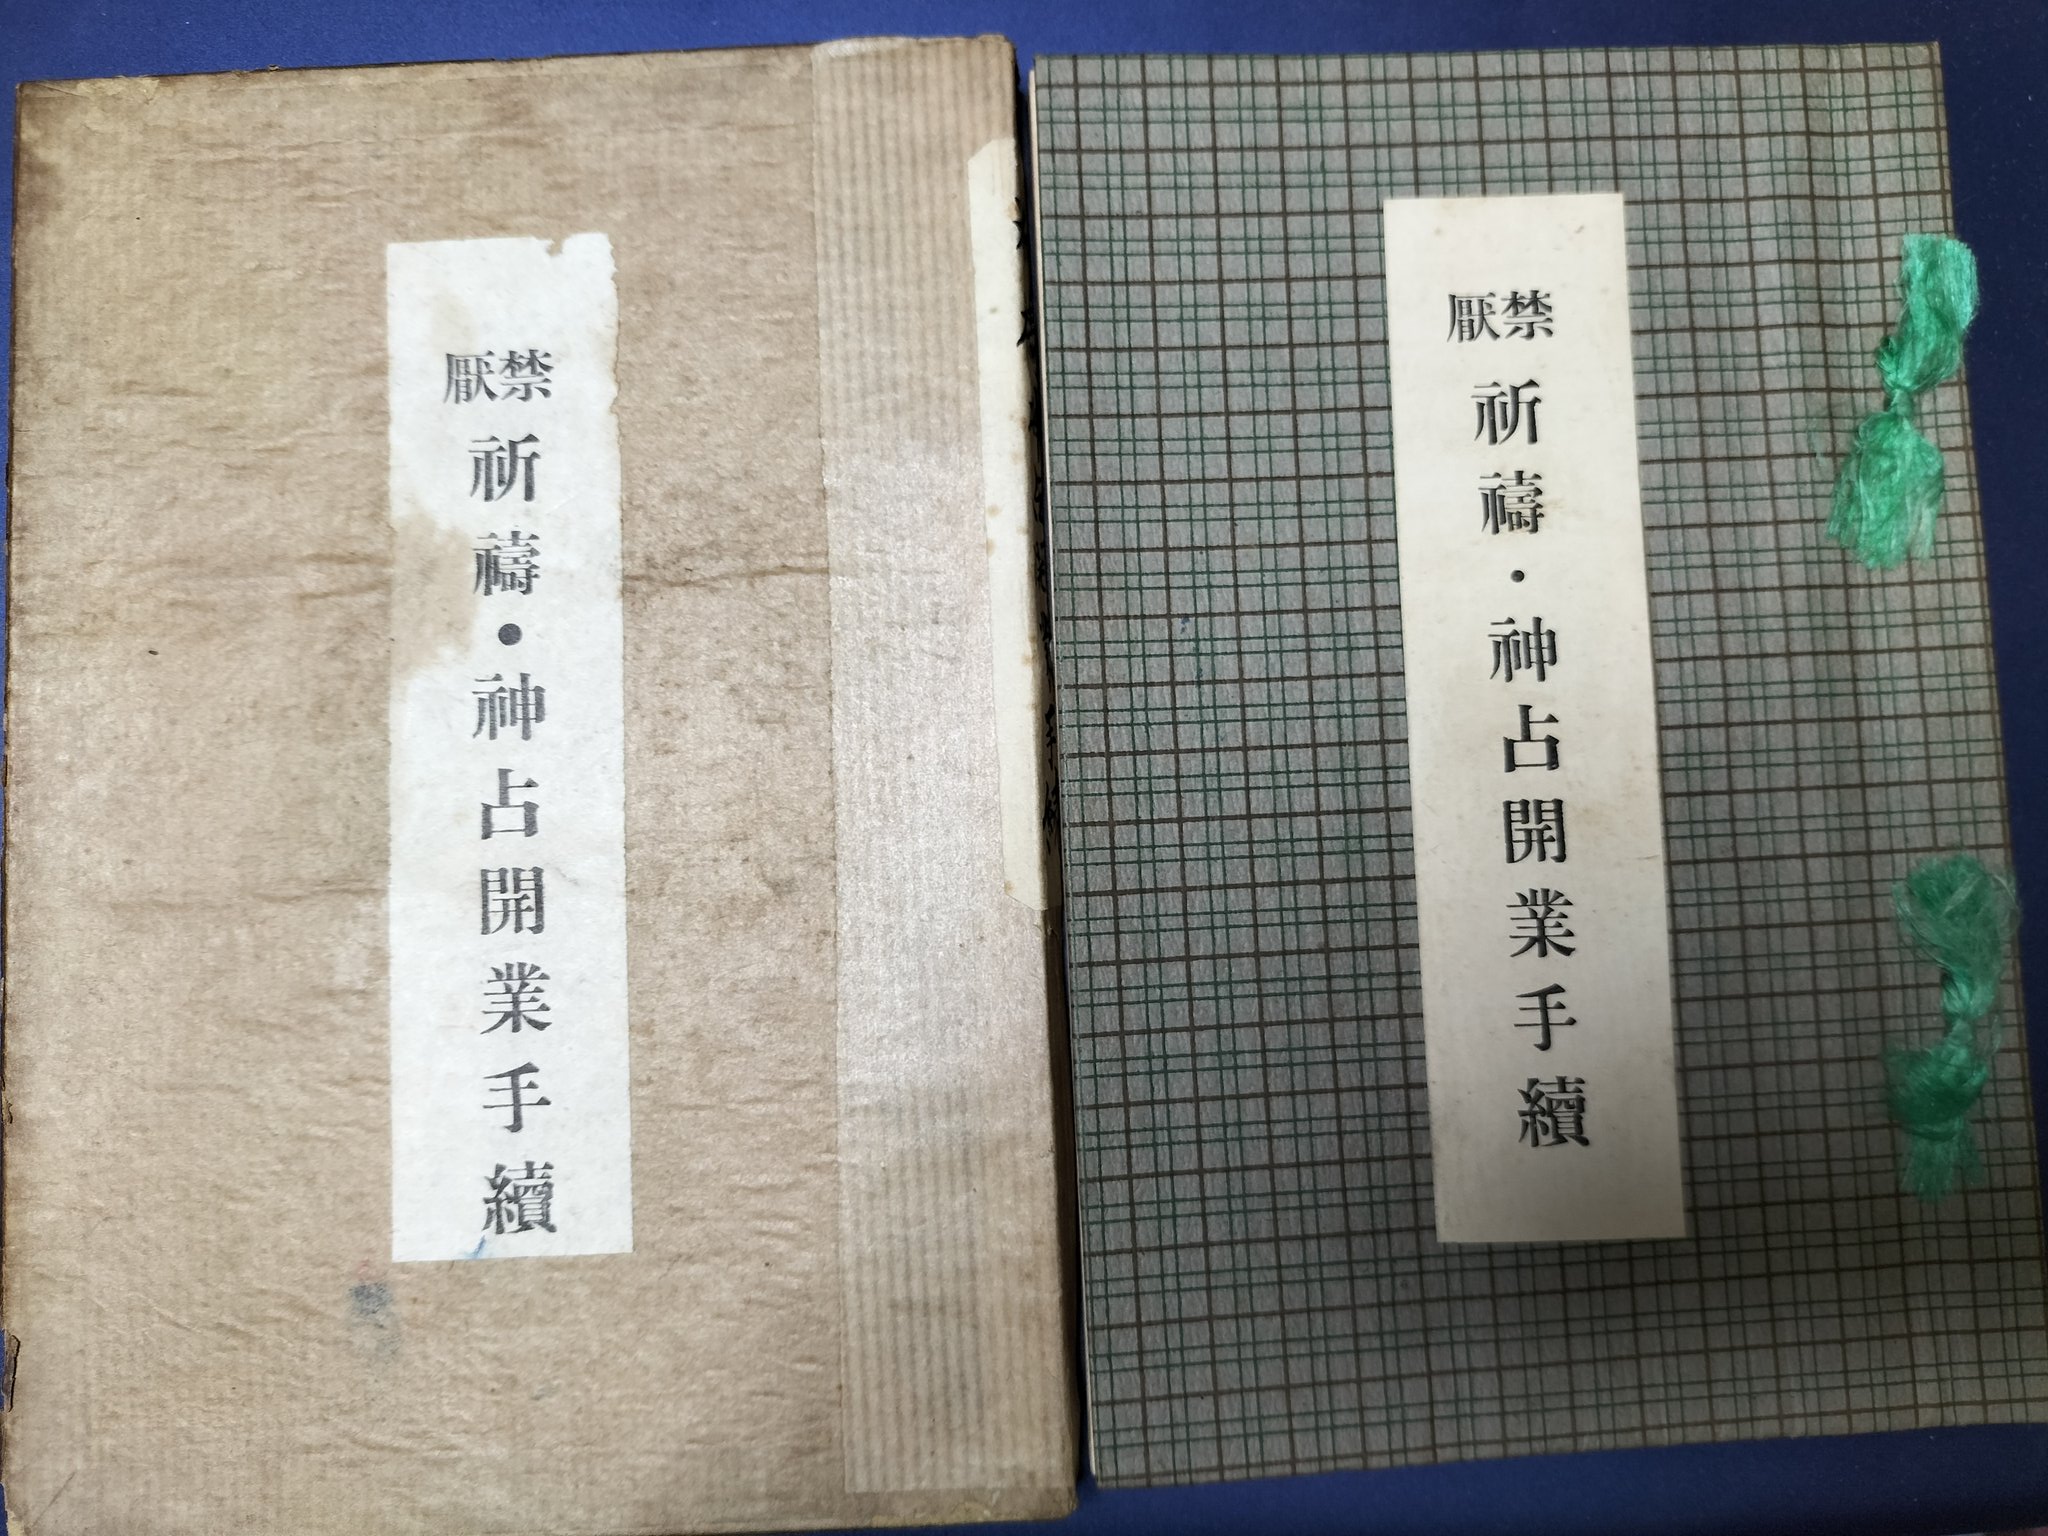 禁厭
祈禱・神占開業手續
禁厭
祈禱・神占開業手續